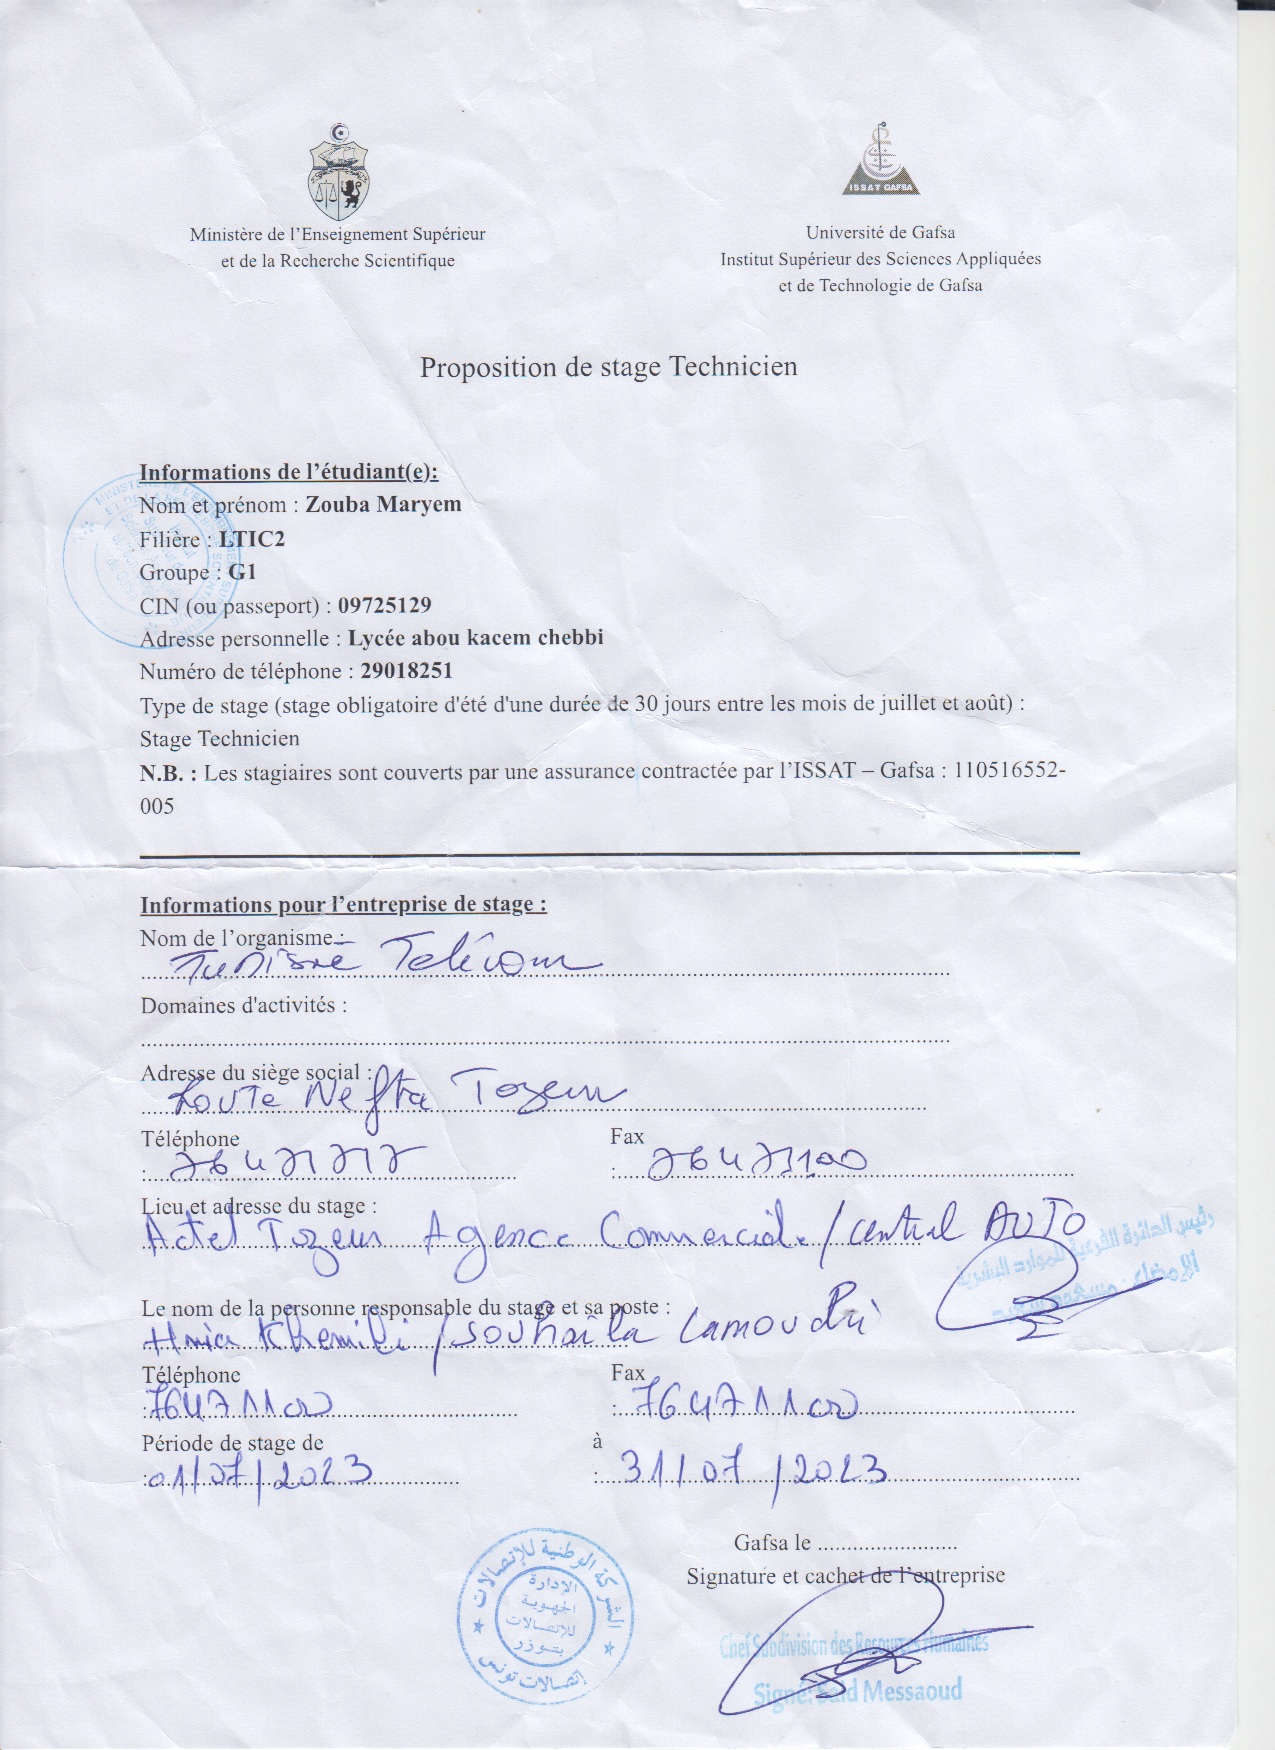 ISSAT GAFSA
Ministère de l'Enseignement Supérieur
et de la Recherche Scientifique
Université de Gafsa
Institut Supérieur des Sciences Appliquées
et de Technologie de Gafsa
Proposition de stage Technicien
Informations de l'étudiant(e):
Nom et prénom : Zouba Maryem
Filière : LTIC2
Groupe : G1
CIN (ou passeport) : 09725129
Adresse personnelle : Lycée abou kacem chebbi
Numéro de téléphone : 29018251
Type de stage (stage obligatoire d'été d'une durée de 30 jours entre les mois de juillet et août) :
Stage Technicien
N.B. : Les stagiaires sont couverts par une assurance contractée par l'ISSAT – Gafsa : 110516552-
005
Informations pour l'entreprise de stage :
Nom de l'organisme :
Tunisie Télécom
Domaines d'activités :
Adresse du siège social :
route Nefta Tozeur
Téléphone Fax
: :
Lieu et adresse du stage :
Actel Tozeur Agence Commercial / central AUTO
رئيس الدائرة الفرعية للموارد البشرية
الإمضاء : مسعود
Le nom de la personne responsable du stage et sa poste :
Hnia Khemili / Souhaila Lamoudi
Téléphone Fax
: 76471100 : 76471100
Période de stage de à
: 01/07/2023 : 31/07/2023
Gafsa le ........................
Signature et cachet de l'entreprise
الشركة الوطنية للإتصالات
الإدارة
الجهوية
للإتصالات
بتوزر
إتصالات تونس
Chef Subdivision des Ressources Humaines
Signé: Said Messaoud